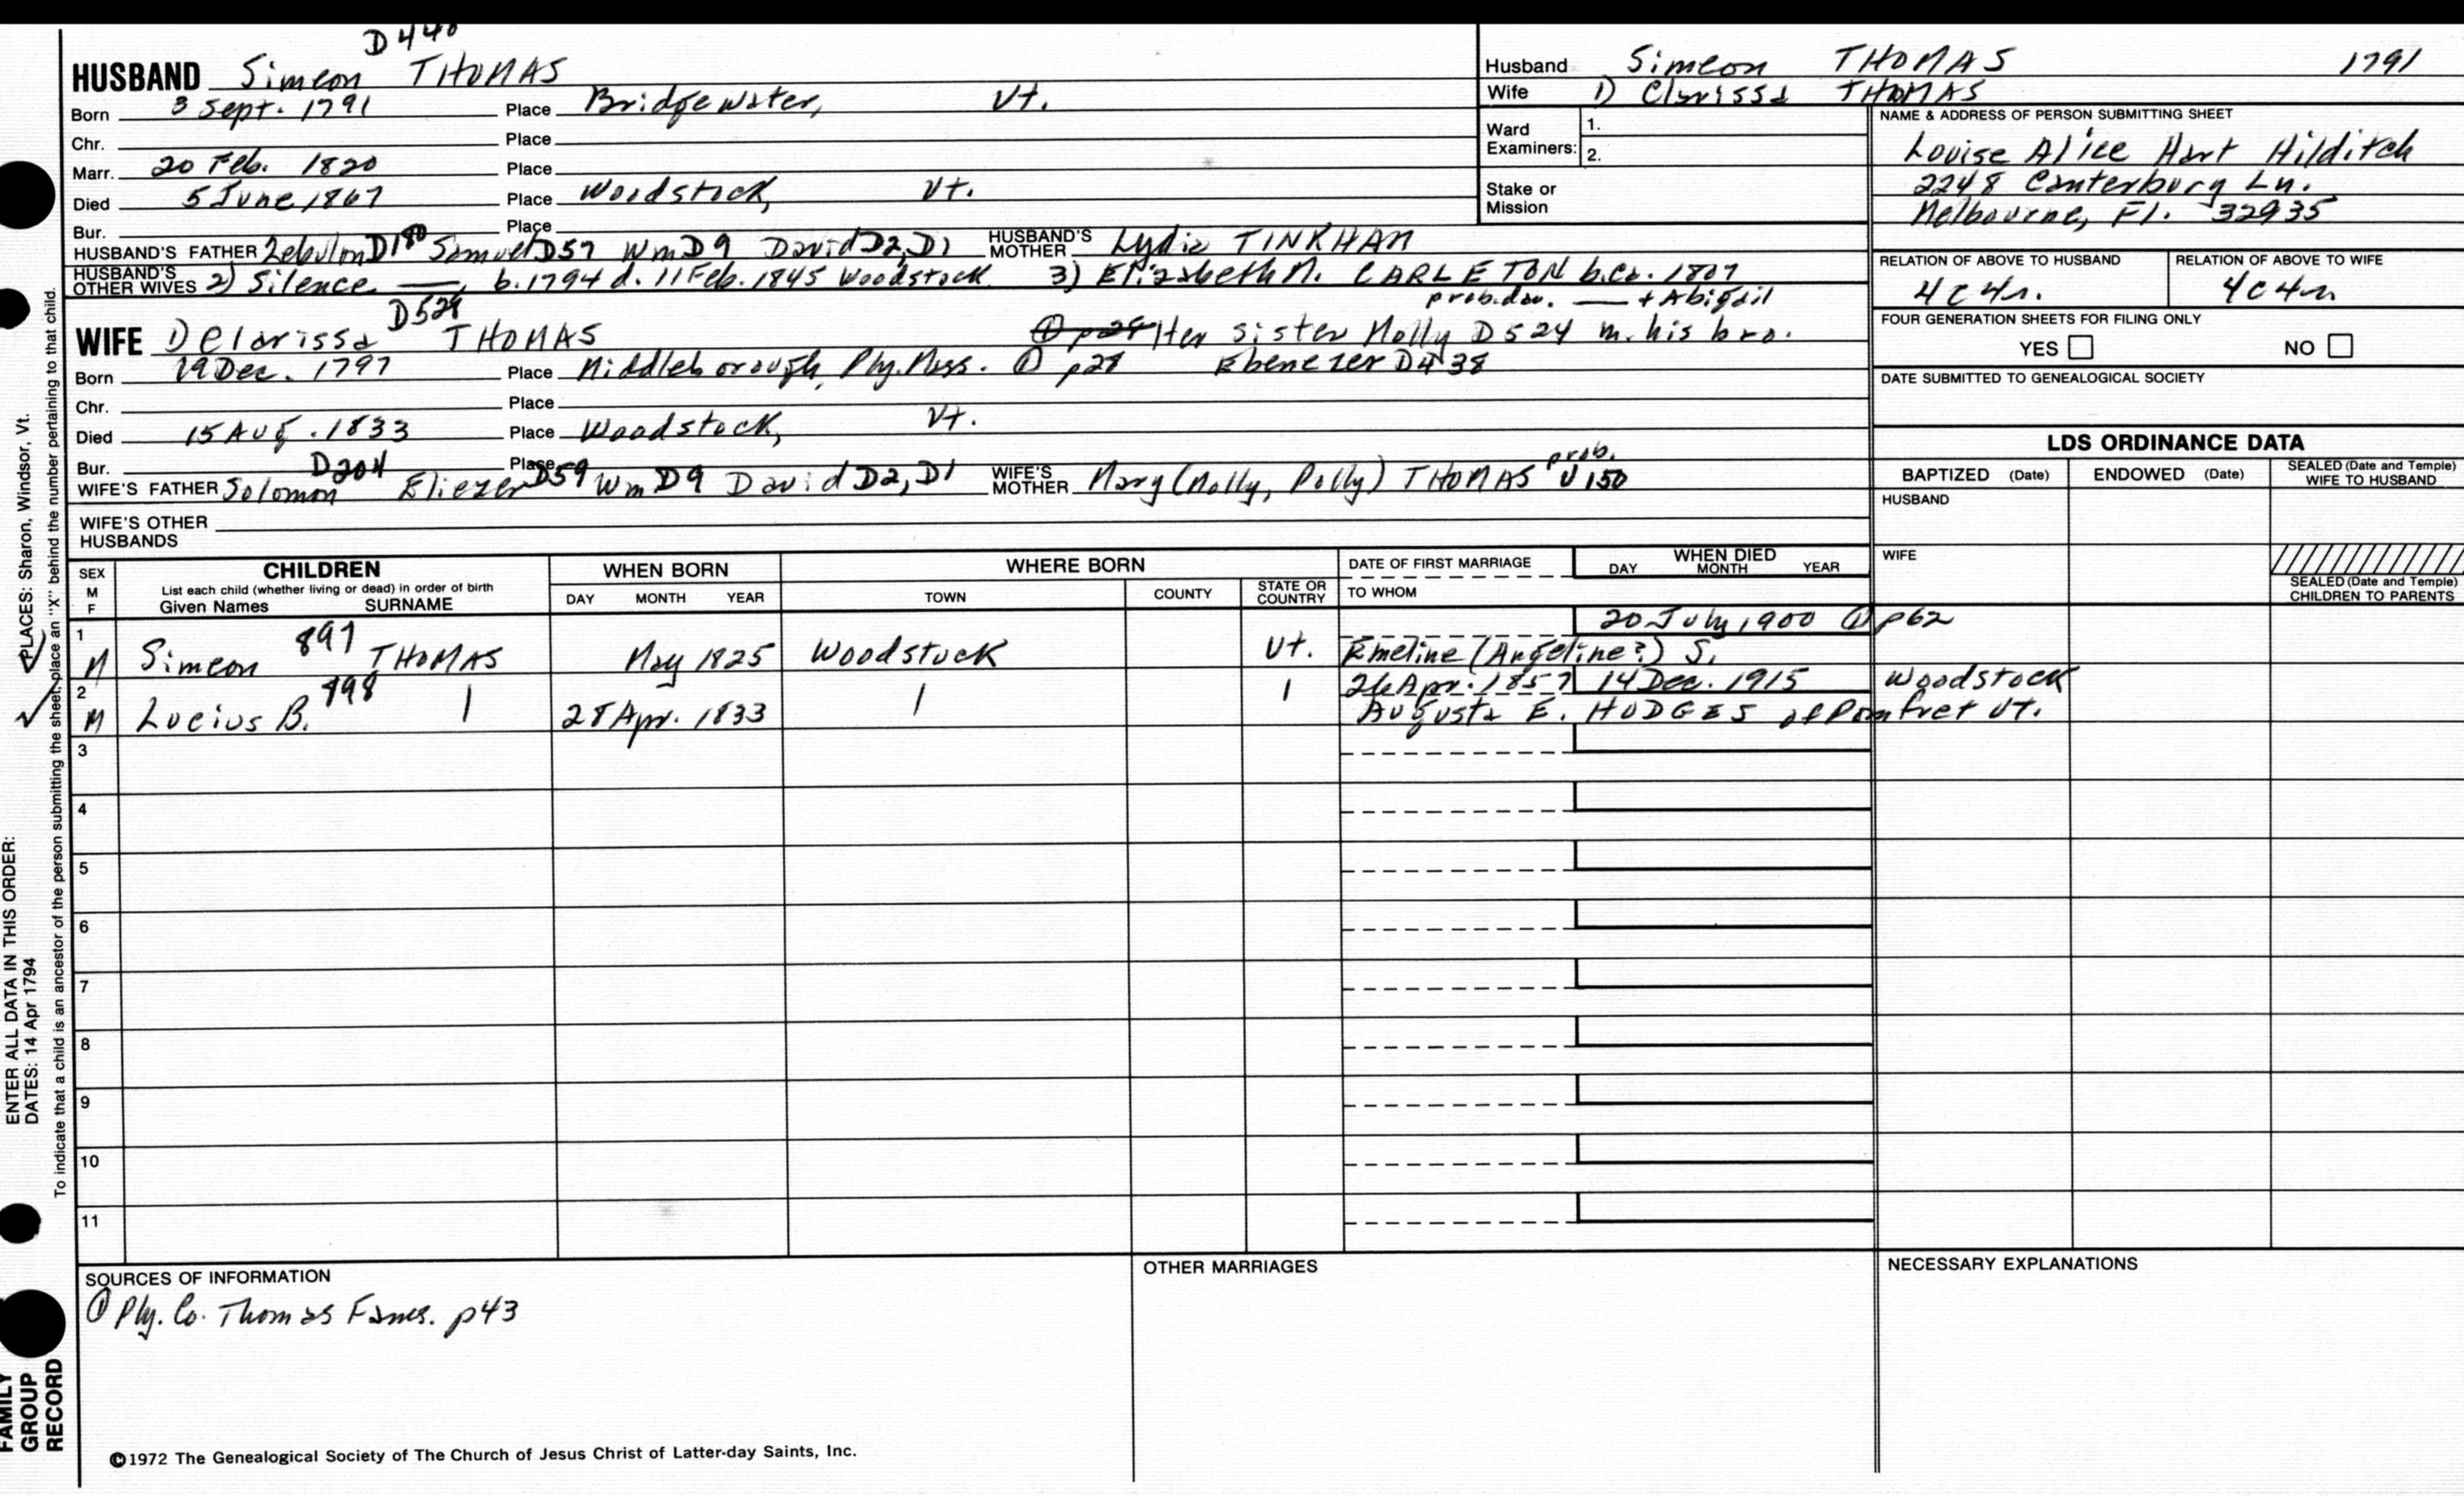 D440
HUSBAND Simeon THOMAS
Born 3 Sept. 1791 Place Bridgewater, Vt.
Chr. Place
Marr. 20 Feb. 1820 Place
Died 5 June 1867 Place Woodstock, Vt.
Bur. Place
HUSBAND'S FATHER Zebulon D180 Samuel D57 Wm D9 David D2, D1 HUSBAND'S MOTHER Lydia TINKHAM
HUSBAND'S OTHER WIVES 2) Silence —, b. 1794 d. 11 Feb. 1845 Woodstock 3) Elizabeth M. CARLETON b. ca. 1807
prob. dau. — + Abigail
Husband Simeon THOMAS 1791
Wife 1) Clarissa THOMAS
Ward Examiners: 1.
2.
Stake or Mission
NAME & ADDRESS OF PERSON SUBMITTING SHEET
Louise Alice Hart Hilditch
2248 Canterbury Ln.
Melbourne, Fl. 32935
RELATION OF ABOVE TO HUSBAND RELATION OF ABOVE TO WIFE
4c4r. 4c4r
FOUR GENERATION SHEETS FOR FILING ONLY
YES NO
DATE SUBMITTED TO GENEALOGICAL SOCIETY
D529
WIFE 1) Clarissa THOMAS Her sister Molly D524 m. his bro.
Born 19 Dec. 1797 Place Middleborough, Ply. Mass. ① p28 Ebenezer D438
Chr. Place
Died 15 Aug. 1833 Place Woodstock, Vt.
Bur. Place
WIFE'S FATHER Solomon D204 Eliezer D59 Wm D9 David D2, D1 WIFE'S MOTHER Mary (Molly, Polly) THOMAS prob. U150
WIFE'S OTHER HUSBANDS
LDS ORDINANCE DATA
BAPTIZED (Date) ENDOWED (Date) SEALED (Date and Temple) WIFE TO HUSBAND
HUSBAND
WIFE
SEALED (Date and Temple) CHILDREN TO PARENTS
SEX M F
CHILDREN
List each child (whether living or dead) in order of birth
Given Names SURNAME
WHEN BORN
DAY MONTH YEAR
WHERE BORN
TOWN COUNTY STATE OR COUNTRY
DATE OF FIRST MARRIAGE
TO WHOM
WHEN DIED
DAY MONTH YEAR
20 July 1900 ① p62
1 M Simeon 897 THOMAS May 1825 Woodstock Vt. Emeline (Angeline?) S.
26 Apr. 1857 14 Dec. 1915 Woodstock
2 M Lucius B. 898 28 Apr. 1833 Augusta E. HODGES of Pomfret Vt.
3
4
5
6
7
8
9
10
11
SOURCES OF INFORMATION
① Ply. Co. Thomas Fames. p43
OTHER MARRIAGES
NECESSARY EXPLANATIONS
©1972 The Genealogical Society of The Church of Jesus Christ of Latter-day Saints, Inc.
PLACES: Sharon, Windsor, Vt.
ENTER ALL DATA IN THIS ORDER:
DATES: 14 Apr 1794
To indicate that a child is an ancestor of the person submitting the sheet, place an "X" behind the number pertaining to that child.
FAMILY
GROUP
RECORD